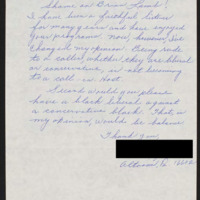 Shame on Brian Lamb!
I have been a faithful listener
for many years and have enjoyed
your programs. Now, however, I've
changed my opinion. Being rude
to a caller, whether they are liberal
or conservative, is not becoming
to a call-in Host.
Second would you please
have a black liberal against
a conservative black. That, in
my opinion, would be balance
Thank you,
Altoona, Pa.